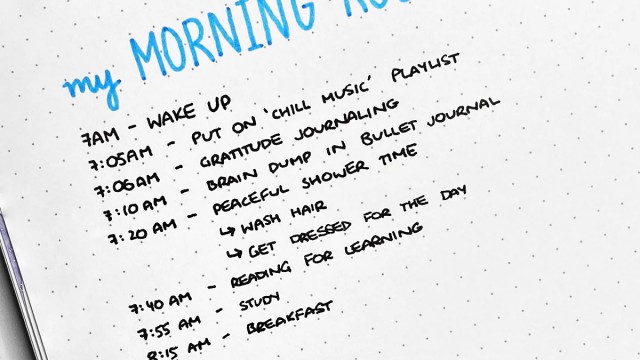 my MORNING
7AM - WAKE UP
7:05AM - PUT ON 'CHILL MUSIC' PLAYLIST
7:06AM - GRATITUDE JOURNALING
7:10 AM - BRAIN DUMP IN BULLET JOURNAL
7:20 AM - PEACEFUL SHOWER TIME
↳ WASH HAIR
↳ GET DRESSED FOR THE DAY
7:40 AM - READING FOR LEARNING
7:55 AM - STUDY
8:15 AM - BREAKFAST